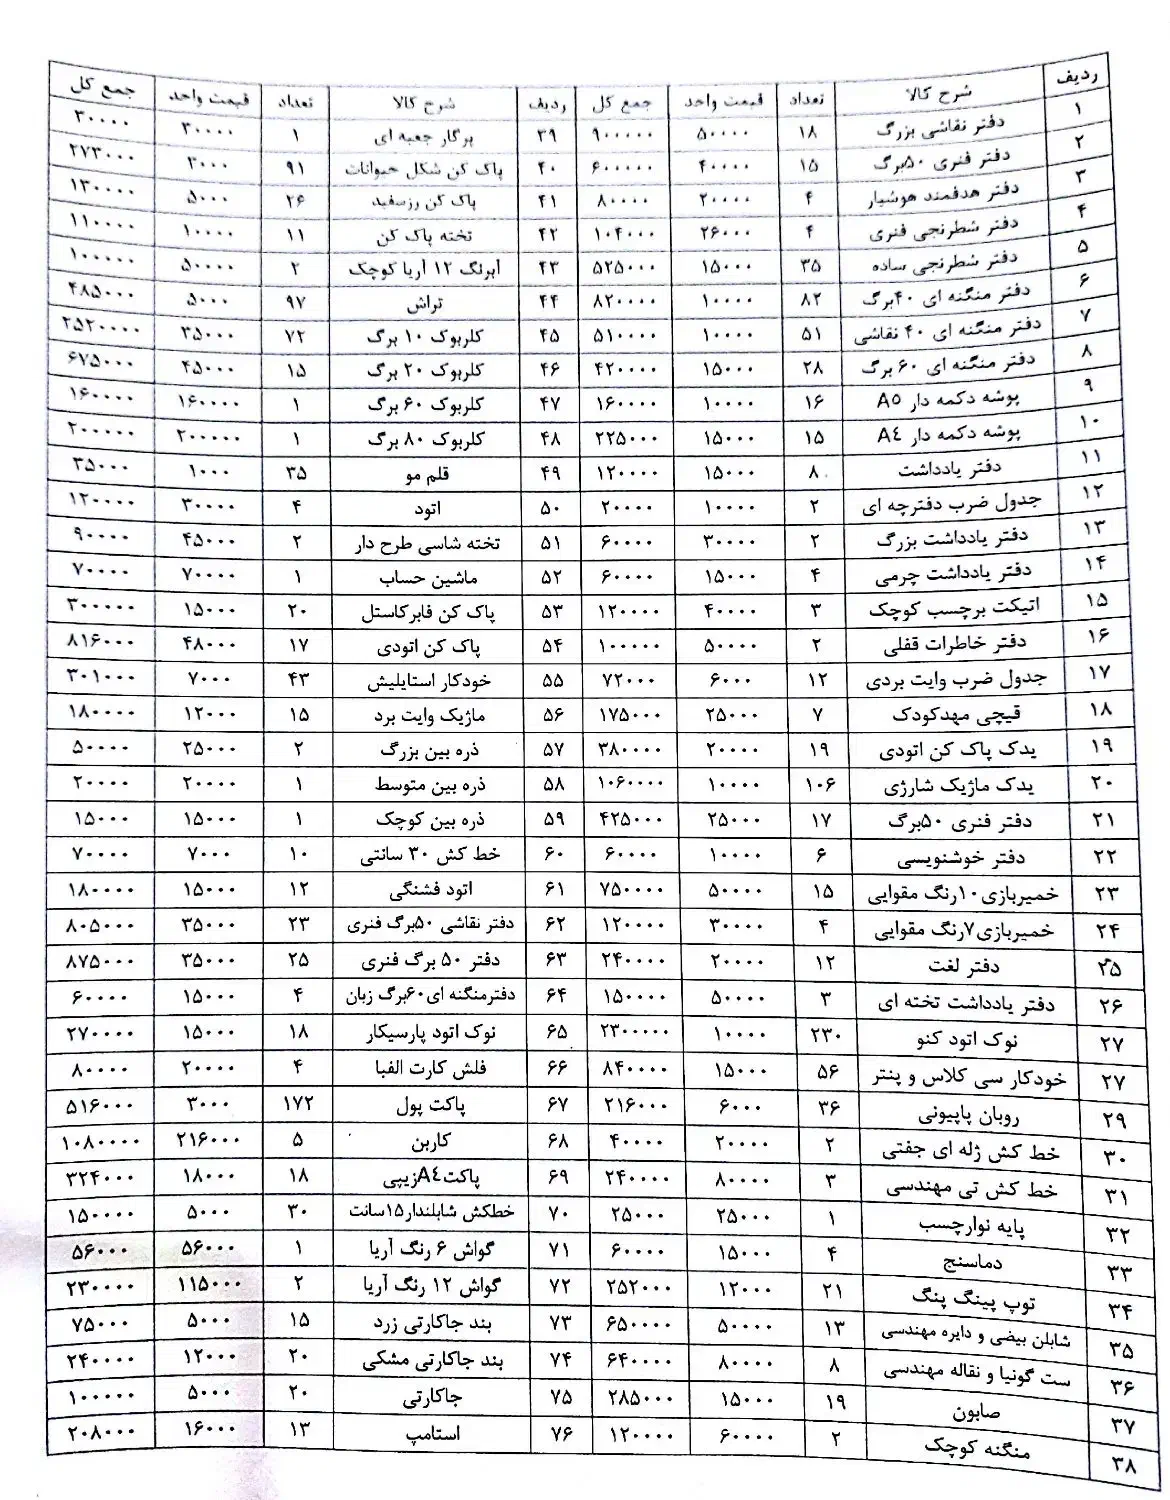 ردیف شرح کالا تعداد قیمت واحد جمع کل ردیف شرح کالا تعداد قیمت واحد جمع کل
۱ دفتر نقاشی بزرگ ۱۸ ۵۰۰۰۰ ۹۰۰۰۰۰ ۳۹ پرگار جعبه ای ۱ ۳۰۰۰۰ ۳۰۰۰۰
۲ دفتر فنری ۵۰برگ ۱۵ ۴۰۰۰۰ ۶۰۰۰۰۰ ۴۰ پاک کن شکل حیوانات ۹۱ ۳۰۰۰ ۲۷۳۰۰۰
۳ دفتر هدفمند هوشیار ۴ ۲۰۰۰۰ ۸۰۰۰۰ ۴۱ پاک کن رزسفید ۲۶ ۵۰۰۰ ۱۳۰۰۰۰
۴ دفتر شطرنجی فنری ۴ ۲۶۰۰۰ ۱۰۴۰۰۰ ۴۲ تخته پاک کن ۱۱ ۱۰۰۰۰ ۱۱۰۰۰۰
۵ دفتر شطرنجی ساده ۳۵ ۱۵۰۰۰ ۵۲۵۰۰۰ ۴۳ آبرنگ ۱۲ آریا کوچک ۲ ۵۰۰۰۰ ۱۰۰۰۰۰
۶ دفتر منگنه ای ۴۰برگ ۸۲ ۱۰۰۰۰ ۸۲۰۰۰۰ ۴۴ تراش ۹۷ ۵۰۰۰ ۴۸۵۰۰۰
۷ دفتر منگنه ای ۴۰ نقاشی ۵۱ ۱۰۰۰۰ ۵۱۰۰۰۰ ۴۵ کلربوک ۱۰ برگ ۷۲ ۳۵۰۰۰ ۲۵۲۰۰۰۰
۸ دفتر منگنه ای ۶۰ برگ ۲۸ ۱۵۰۰۰ ۴۲۰۰۰۰ ۴۶ کلربوک ۲۰ برگ ۱۵ ۴۵۰۰۰ ۶۷۵۰۰۰
۹ پوشه دکمه دار A٥ ۱۶ ۱۰۰۰۰ ۱۶۰۰۰۰ ۴۷ کلربوک ۶۰ برگ ۱ ۱۶۰۰۰۰ ۱۶۰۰۰۰
۱۰ پوشه دکمه دار A٤ ۱۵ ۱۵۰۰۰ ۲۲۵۰۰۰ ۴۸ کلربوک ۸۰ برگ ۱ ۲۰۰۰۰۰ ۲۰۰۰۰۰
۱۱ دفتر یادداشت ۸ ۱۵۰۰۰ ۱۲۰۰۰۰ ۴۹ قلم مو ۳۵ ۱۰۰۰ ۳۵۰۰۰
۱۲ جدول ضرب دفترچه ای ۲ ۱۰۰۰۰ ۲۰۰۰۰ ۵۰ اتود ۴ ۳۰۰۰۰ ۱۲۰۰۰۰
۱۳ دفتر یادداشت بزرگ ۲ ۳۰۰۰۰ ۶۰۰۰۰ ۵۱ تخته شاسی طرح دار ۲ ۴۵۰۰۰ ۹۰۰۰۰
۱۴ دفتر یادداشت چرمی ۴ ۱۵۰۰۰ ۶۰۰۰۰ ۵۲ ماشین حساب ۱ ۷۰۰۰۰ ۷۰۰۰۰
۱۵ اتیکت برچسب کوچک ۳ ۴۰۰۰۰ ۱۲۰۰۰۰ ۵۳ پاک کن فابرکاستل ۲۰ ۱۵۰۰۰ ۳۰۰۰۰۰
۱۶ دفتر خاطرات قفلی ۲ ۵۰۰۰۰ ۱۰۰۰۰۰ ۵۴ پاک کن اتودی ۱۷ ۴۸۰۰۰ ۸۱۶۰۰۰
۱۷ جدول ضرب وایت بردی ۱۲ ۶۰۰۰ ۷۲۰۰۰ ۵۵ خودکار استایلیش ۴۳ ۷۰۰۰ ۳۰۱۰۰۰
۱۸ قیچی مهدکودک ۷ ۲۵۰۰۰ ۱۷۵۰۰۰ ۵۶ ماژیک وایت برد ۱۵ ۱۲۰۰۰ ۱۸۰۰۰۰
۱۹ یدک پاک کن اتودی ۱۹ ۲۰۰۰۰ ۳۸۰۰۰۰ ۵۷ ذره بین بزرگ ۲ ۲۵۰۰۰ ۵۰۰۰۰
۲۰ یدک ماژیک شارژی ۱۰۶ ۱۰۰۰۰ ۱۰۶۰۰۰۰ ۵۸ ذره بین متوسط ۱ ۲۰۰۰۰ ۲۰۰۰۰
۲۱ دفتر فنری ۵۰برگ ۱۷ ۲۵۰۰۰ ۴۲۵۰۰۰ ۵۹ ذره بین کوچک ۱ ۱۵۰۰۰ ۱۵۰۰۰
۲۲ دفتر خوشنویسی ۶ ۱۰۰۰۰ ۶۰۰۰۰ ۶۰ خط کش ۳۰ سانتی ۱۰ ۷۰۰۰ ۷۰۰۰۰
۲۳ خمیربازی۱۰رنگ مقوایی ۱۵ ۵۰۰۰۰ ۷۵۰۰۰۰ ۶۱ اتود فشنگی ۱۲ ۱۵۰۰۰ ۱۸۰۰۰۰
۲۴ خمیربازی۷رنگ مقوایی ۴ ۳۰۰۰۰ ۱۲۰۰۰۰ ۶۲ دفتر نقاشی ۵۰برگ فنری ۲۳ ۳۵۰۰۰ ۸۰۵۰۰۰
۲۵ دفتر لغت ۱۲ ۲۰۰۰۰ ۲۴۰۰۰۰ ۶۳ دفتر ۵۰ برگ فنری ۲۵ ۳۵۰۰۰ ۸۷۵۰۰۰
۲۶ دفتر یادداشت تخته ای ۳ ۵۰۰۰۰ ۱۵۰۰۰۰ ۶۴ دفترمنگنه ای۶۰برگ زبان ۴ ۱۵۰۰۰ ۶۰۰۰۰
۲۷ نوک اتود کنو ۲۳۰ ۱۰۰۰۰ ۲۳۰۰۰۰۰ ۶۵ نوک اتود پارسیکار ۱۸ ۱۵۰۰۰ ۲۷۰۰۰۰
۲۷ خودکار سی کلاس و پنتر ۵۶ ۱۵۰۰۰ ۸۴۰۰۰۰ ۶۶ فلش کارت الفبا ۴ ۲۰۰۰۰ ۸۰۰۰۰
۲۹ روبان پاپیونی ۳۶ ۶۰۰۰ ۲۱۶۰۰۰ ۶۷ پاکت پول ۱۷۲ ۳۰۰۰ ۵۱۶۰۰۰
۳۰ خط کش ژله ای جفتی ۲ ۲۰۰۰۰ ۴۰۰۰۰ ۶۸ کاربن ۵ ۲۱۶۰۰۰ ۱۰۸۰۰۰۰
۳۱ خط کش تی مهندسی ۳ ۸۰۰۰۰ ۲۴۰۰۰۰ ۶۹ پاکتA٤زیپی ۱۸ ۱۸۰۰۰ ۳۲۴۰۰۰
۳۲ پایه نوارچسب ۱ ۲۵۰۰۰ ۲۵۰۰۰ ۷۰ خطکش شابلندار۱۵سانت ۳۰ ۵۰۰۰ ۱۵۰۰۰۰
۳۳ دماسنج ۴ ۱۵۰۰۰ ۶۰۰۰۰ ۷۱ گواش ۶ رنگ آریا ۱ ۵۶۰۰۰ ۵۶۰۰۰
۳۴ توپ پینگ پنگ ۲۱ ۱۲۰۰۰ ۲۵۲۰۰۰ ۷۲ گواش ۱۲ رنگ آریا ۲ ۱۱۵۰۰۰ ۲۳۰۰۰۰
۳۵ شابلن بیضی و دایره مهندسی ۱۳ ۵۰۰۰۰ ۶۵۰۰۰۰ ۷۳ بند جاکارتی زرد ۱۵ ۵۰۰۰ ۷۵۰۰۰
۳۶ ست گونیا و نقاله مهندسی ۸ ۸۰۰۰۰ ۶۴۰۰۰۰ ۷۴ بند جاکارتی مشکی ۲۰ ۱۲۰۰۰ ۲۴۰۰۰۰
۳۷ صابون ۱۹ ۱۵۰۰۰ ۲۸۵۰۰۰ ۷۵ جاکارتی ۲۰ ۵۰۰۰ ۱۰۰۰۰۰
۳۸ منگنه کوچک ۲ ۶۰۰۰۰ ۱۲۰۰۰۰ ۷۶ استامپ ۱۳ ۱۶۰۰۰ ۲۰۸۰۰۰